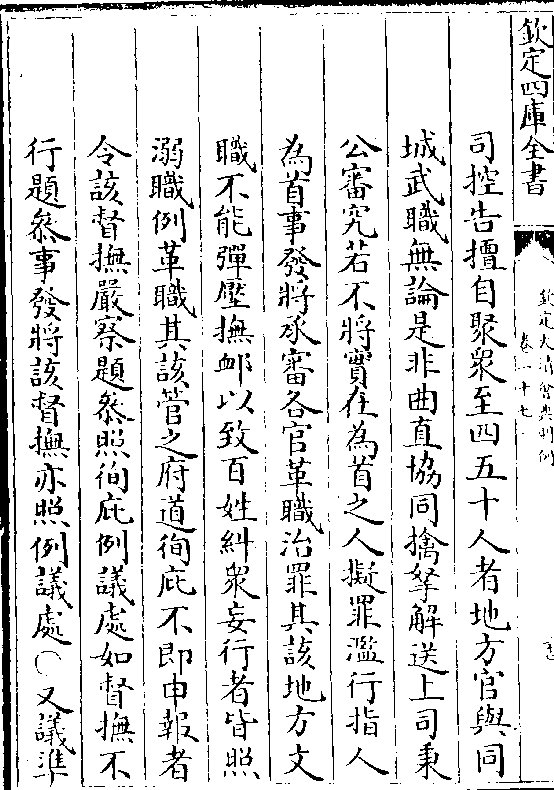 欽定四庫全書
欽定大清會典則例
卷二十七
司控告擅自聚衆至四五十人者地方官與同
城武職無論是非曲直協同擒拏解送上司秉
公審究若不將實在為首之人擬罪濫行指人
為首事發將承審各官革職治罪其該地方文
職不能彈壓撫衅以致百姓糾衆妄行者皆照
溺職例革職其該管之府道徇庇不即申報者
令該督撫嚴察題叅照徇庇例議處如督撫不
行題叅事發將該督撫亦照例議處〇又議準